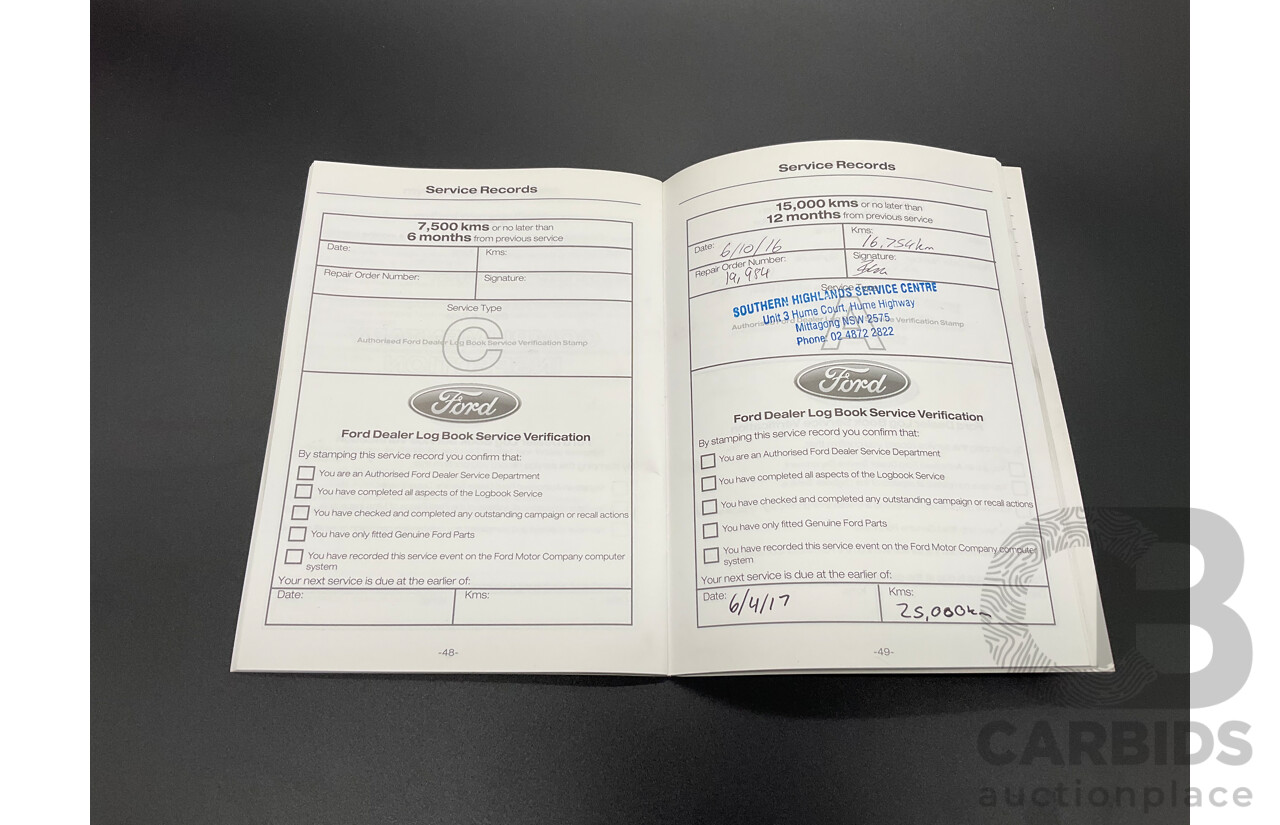 Service Records
7,500 kms or no later than
6 months from previous service
Date:
Kms:
Repair Order Number:
Signature:
Service Type
C
Authorised Ford Dealer Log Book Service Verification Stamp
Ford
Ford Dealer Log Book Service Verification
By stamping this service record you confirm that:
You are an Authorised Ford Dealer Service Department
You have completed all aspects of the Logbook Service
You have checked and completed any outstanding campaign or recall actions
You have only fitted Genuine Ford Parts
You have recorded this service event on the Ford Motor Company computer
system
Your next service is due at the earlier of:
Date:
Kms:
-48-
Service Records
15,000 kms or no later than
12 months from previous service
Date: 6/10/16
Kms: 16,754km
Repair Order Number:
19,984
Signature:
Service
SOUTHERN HIGHLANDS SERVICE CENTRE
Unit 3 Hume Court, Hume Highway
Mittagong NSW 2575
Phone: 02 4872 2822
A
Authorised Ford Verification Stamp
Ford
Ford Dealer Log Book Service Verification
By stamping this service record you confirm that:
You are an Authorised Ford Dealer Service Department
You have completed all aspects of the Logbook Service
You have checked and completed any outstanding campaign or recall actions
You have only fitted Genuine Ford Parts
You have recorded this service event on the Ford Motor Company computer
system
Your next service is due at the earlier of:
Date: 6/4/17
Kms:
25,000km
-49-
CB
CARBIDS
auctionplace